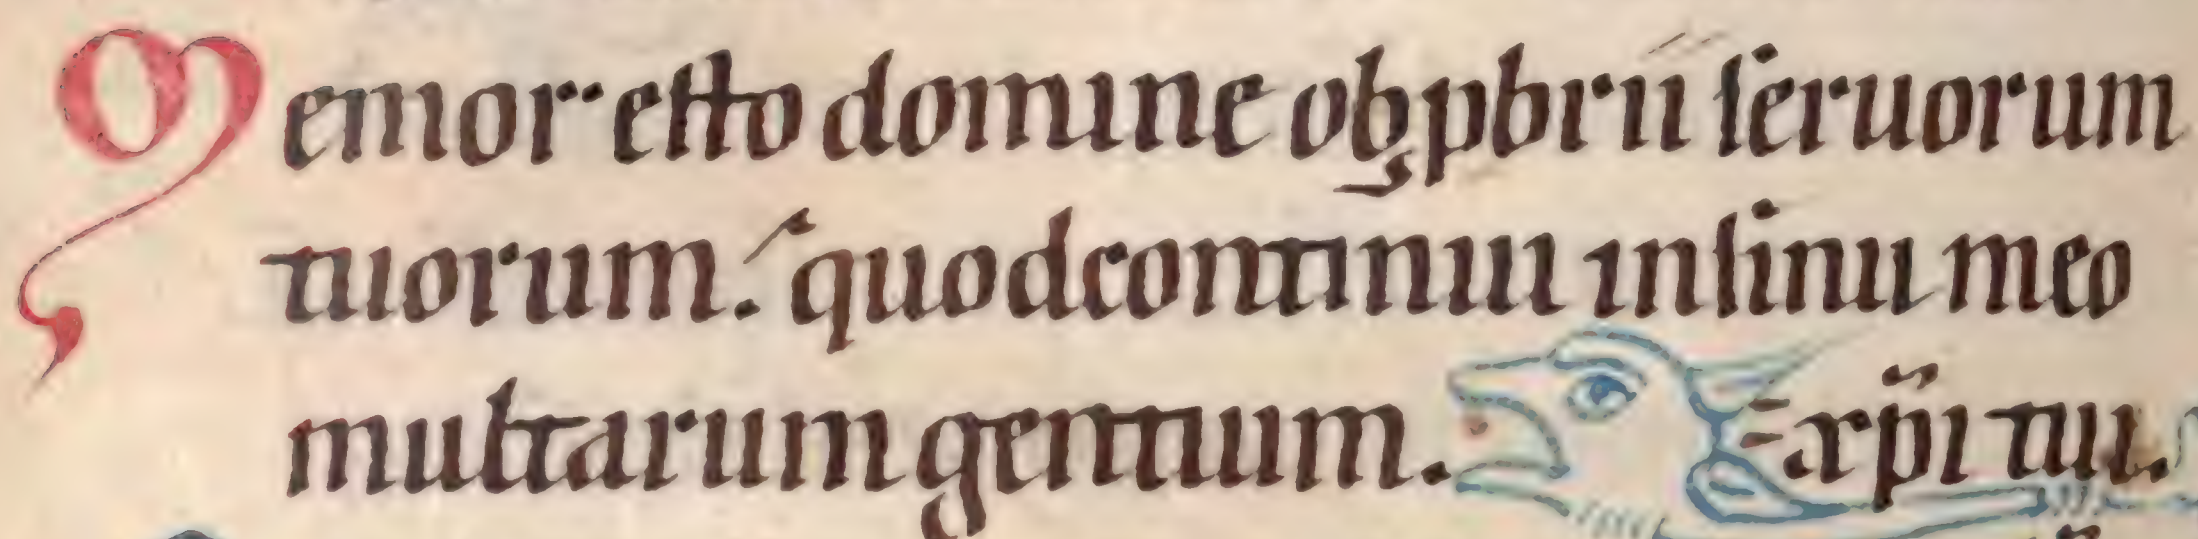 Memor esto domine obꝓbrii seruorum
tuorum. quod continui in sinu meo
multarum gentium. = xp̃i tui.